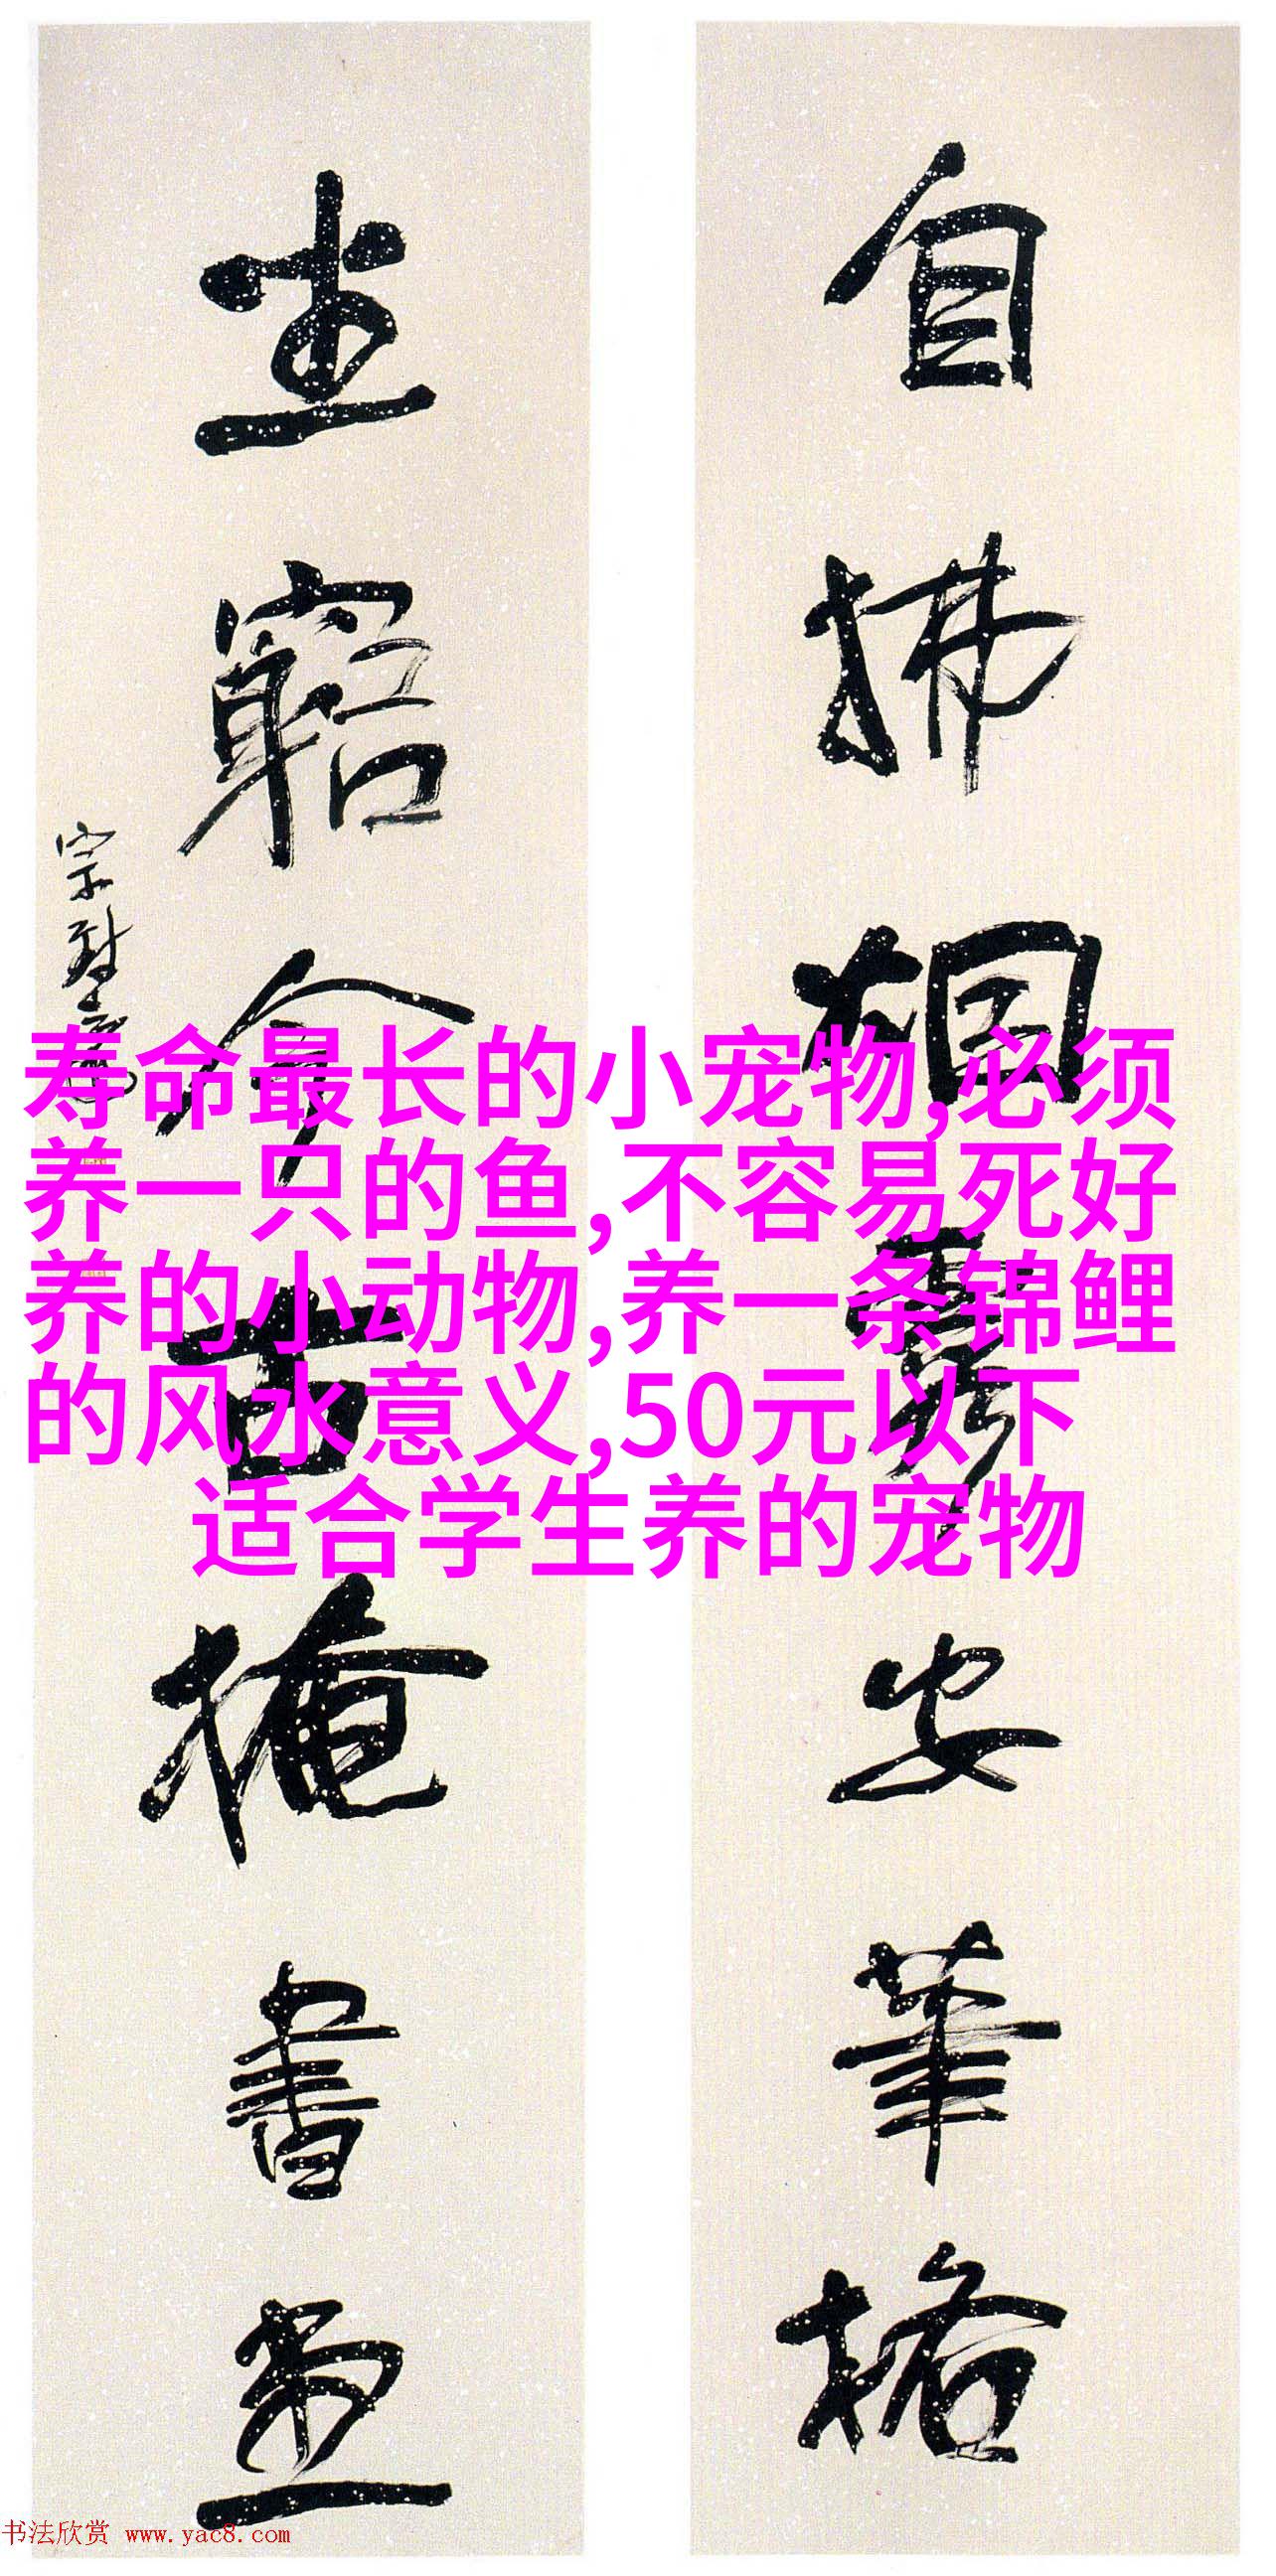 自拂烟霞安筆格
坐窮今古掩書堂
寿命最长的小宠物,必须
养一只的鱼,不容易死好
养的小动物,养一条锦鲤
的风水意义,50元以下
适合学生养的宠物
书法欣赏 www.yac8.com